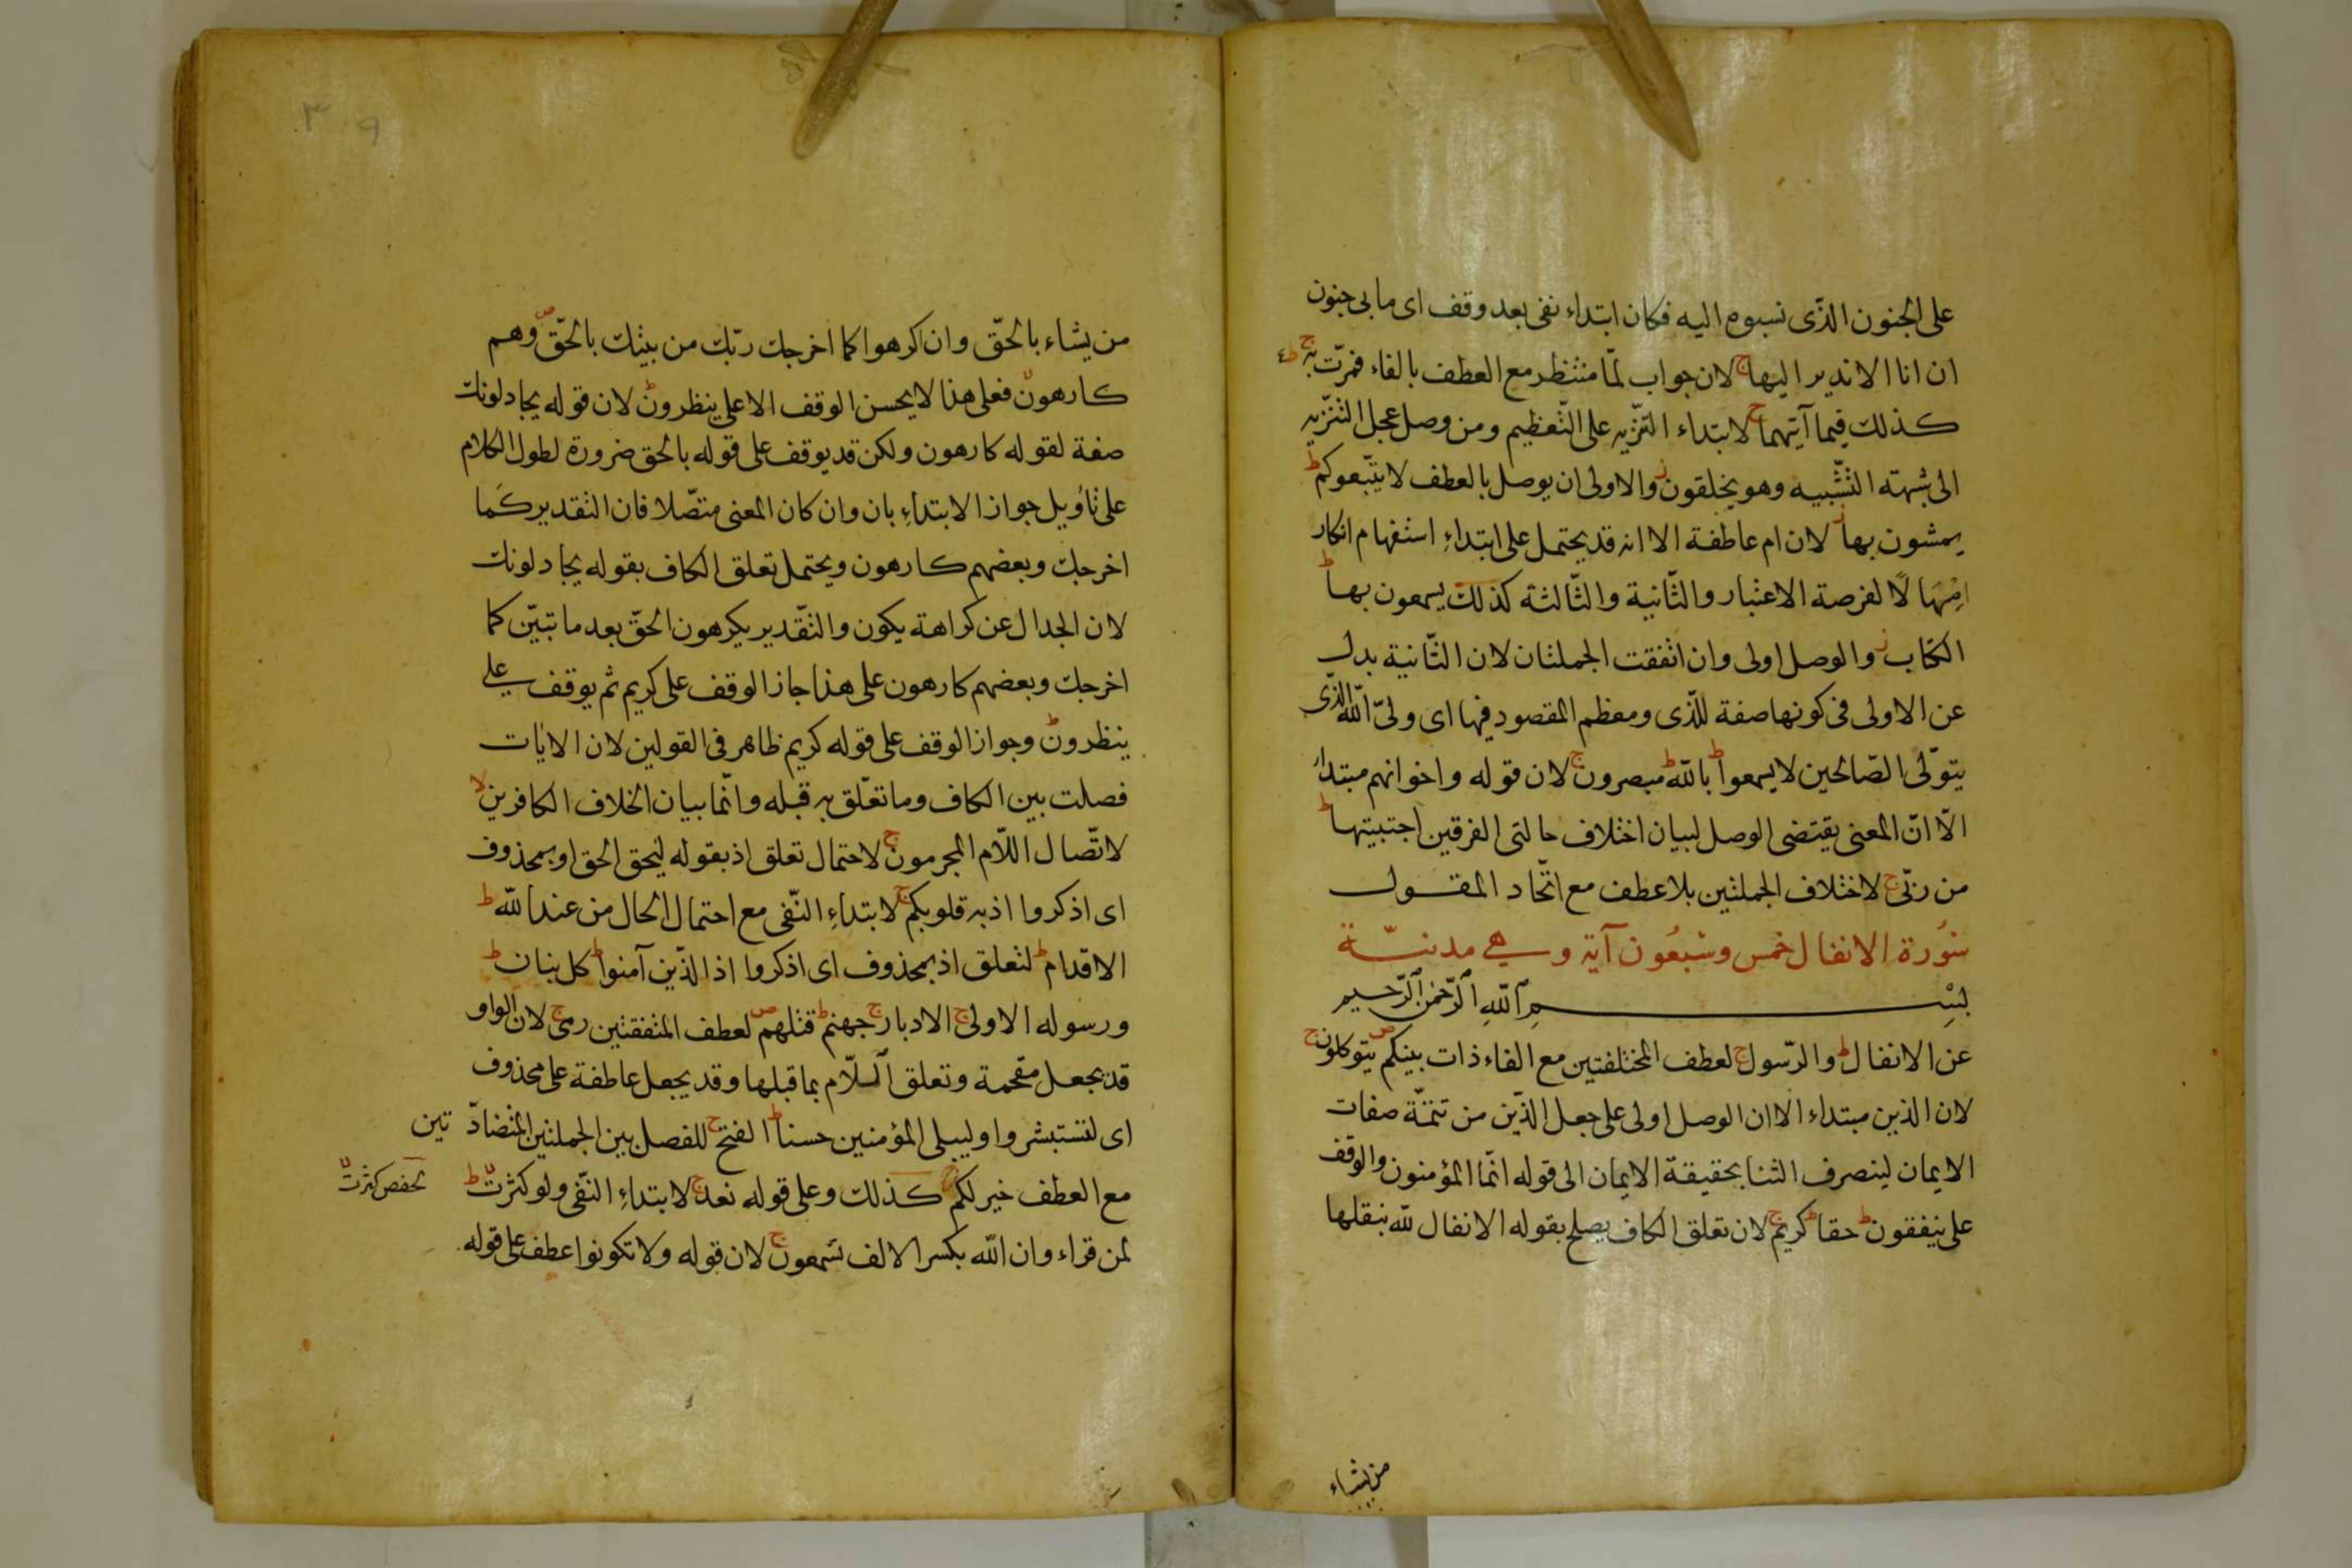 على الجنون الذّى نسبوه اليه فكان ابتداء نفى بعد وقف اى ما بى جنون
ان انا الا نذير اليها ج لان جواب لمّا منتظر مع العطف بالفاء فمرّت به ج ط
كذلك فيما آتيهما ج لابتداء التنزّيه على التّعظيم ومن وصل عجل التنزّيه
الى شبهة التّشبيه وهو يخلقون ز والاولى ان يوصل بالعطف لا يتّبعوكم ط
يمشون بها ز لان ام عاطفة الا انه قد يحتمل على ابتداءِ استفهام انكار
امْهَالًا لفرصة الاعتبار والثّانية والثّالثة كذلك يسمعون بها ط
الكتاب ز والوصل اولى وان اتفقت الجملتان لان الثّانية بدل
عن الاولى فى كونها صفة للّذى ومعظم المقصود فيها اى ولىّ اللّه الذّى
يتوّلى الصّالحين لا يسمعوا ط باللّه ط مبصرون ج لان قوله واخوانهم مبتداء
الاّ انّ المعنى يقتضى الوصل لبيان اختلاف حالتى الفرقين اجتبيتها ط
من ربّى ج لاختلاف الجملتين بلا عطف مع اتّحاد المقول
سُورة الانفال خمس وسَبعُون آية وهى مدنيّة
بِسْمِ ٱللّهِ ٱلرّحْمٰنِ ٱلرّحيم
عن الانفال ط والرّسول ج لعطف المختلفتين مع الفاء ذات بينكم ص يتوكلون ج
لان الذين مبتداء الا ان الوصل اولى على جعل الذّين من تتمّة صفات
الايمان لينصرف الثنا بحقيقة الايمان الى قوله انّما المؤمنون والوقف
على ينفقون ط حقا ط كريم ج لان تعلق الكاف يصلح بقوله الانفال للّه ينقلها
من يشاء
٣٩
من يشاء بالحّق وان اكرهوا كما اخرجك ربّك من بيتك بالحّق ص وهم
كارهون لا فعلى هذا لا يحسن الوقف الا على ينظرون ط لان قوله يجادلونك
صفة لقوله كارهون ولكن قد يوقف على قوله بالحق ضرورة لطول الكلام
على تاوُيل جواز الابتداءِ بان وان كان المعنى متصّلا فان التقدير كَما
اخرجك وبعضهم كارهون ويحتمل تعلق الكاف بقوله يجادلونك
لان الجدال عن كراهة يكون والتقّدير يكرهون الحقّ بعد ما تبيّن كما
اخرجك وبعضهم كارهون على هذا جاز الوقف على كريم ثم يوقف على
ينظرون ط وجواز الوقف على قوله كريم ظاهر فى القولين لان الايٰات
فصلت بين الكاف وما تعّلق به قبله وانّما بيان الخلاف الكافرين لا
لاتّصال اللّام المجرمون ج لاحتمال تعلق اذ بقوله ليحق الحق او بمحذوف
اى اذكروا اذ به قلوبكم ج لابتداءِ النّفى مع احتمال الحال من عند اللّه ط
الاقدام ط لتعلق اذ بمحذوف اى اذكروا اذ الذّين آمنوا ط كل بنان ط
ورسوله الاولى ج الادبار ج جهنم ط قتلهم ص لعطف المتفقتين رمى ج لان الواو
قد يجعل مقحمة وتعلق ٱللّام بما قبلها وقد يجعل عاطفة على محذوف
اى لتستبشروا وليبلى المؤمنين حسنا ط الفتح ج للفصل بين الجملتين المتضادّتين
مع العطف خير لكم ج كذلك وعلى قوله نعد ج لابتداءِ النّفى ولو كثرت ط
لحفص كثرت لا
لمن قراء وان اللّه بكسر الالف تسمعون ج لان قوله ولا تكونوا عطف على قوله